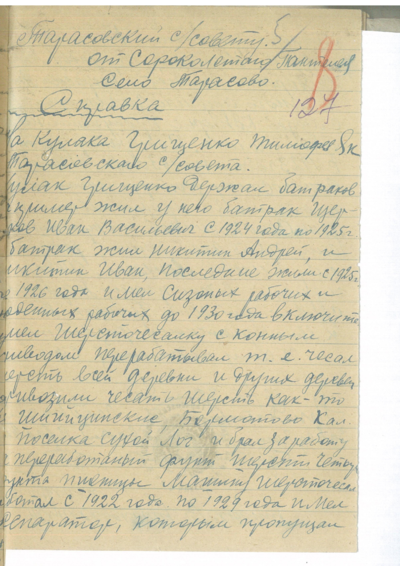 Тарасовский с/совету
от Сороколетова Пантелея
село Тарасово.
8
127
Справка
на Кулака Грищенко Тимофея
Тарасовского с/совета.
кулак Грищенко Держал батраков
пример жил у него батрак
Иван Васильевич с 1924 года по 1925 г
батрак жил Никитин Андрей, и
Никитин Иван, последние жили с 1925 г
1926 года имел сизоных рабочих и
поденных рабочих до 1930 года включит
имел шерсточесалку с конным
приводом перерабатывал т. е. чесал
шерсть всей деревни и других деревен
привозили чесать шерсть как-то
Бормотово
поселка сухой Лог и брал за работу
переработаный фунт шерсти
фунта пшеницы машину шерсточеск
работал с 1922 года по 1929 года имел
сепаратор, которым пропущал